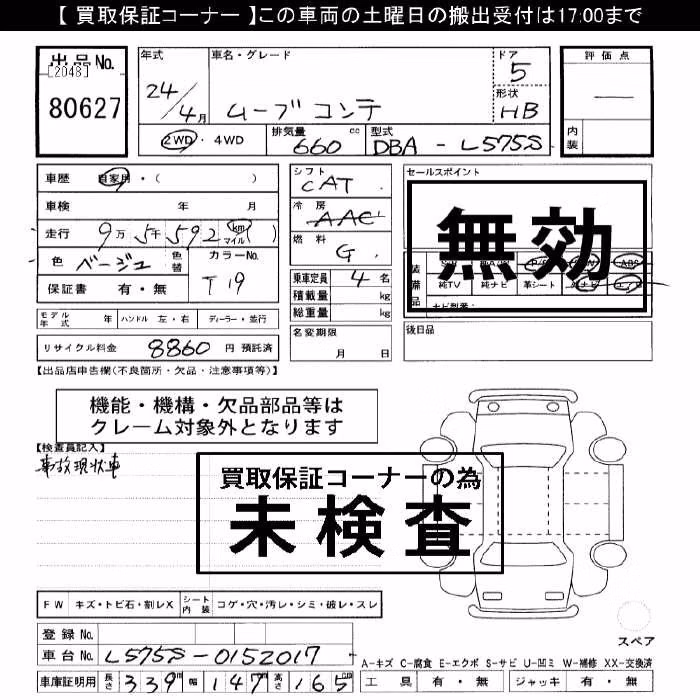 【 買取保証コーナー 】この車両の土曜日の搬出受付は17:00まで
出品No.
[2048]
80627
年式
24/4月
車名・グレード
ムーブコンテ
ドア
5
形状
HB
評価点
—
内装
2WD・4WD
排気量 660 cc
型式 DBA - L575S
車歴 自家用・( )
車検 年 月
走行 9万5千592 km マイル ( )
色 ベージュ 色替
カラーNo. T19
保証書 有・無
シフト CAT
冷房 AAC
燃料 G
乗車定員 4名
積載量 kg
総重量 kg
名変期限
月 日
セールスポイント
無効
装備品
ABS
純TV 純ナビ 革シート
後日品
モデル年式 年 ハンドル 左・右 ディーラー・並行
リサイクル料金 8860 円 預託済
【出品店申告欄(不良箇所・欠品・注意事項等)】
機能・機構・欠品部品等は
クレーム対象外となります
【検査員記入】
事故現状車
買取保証コーナーの為
未検査
FW キズ・トビ石・割レX シート内装 コゲ・穴・汚レ・シミ・破レ・スレ
スペア
登録No.
車台No. L575S-0152017
A-キズ C-腐食 E-エクボ S-サビ U-凹ミ W-補修 XX-交換済
車庫証明用 長さ 339 幅 147 高さ 165 cm
工具 有・無 ジャッキ 有・無